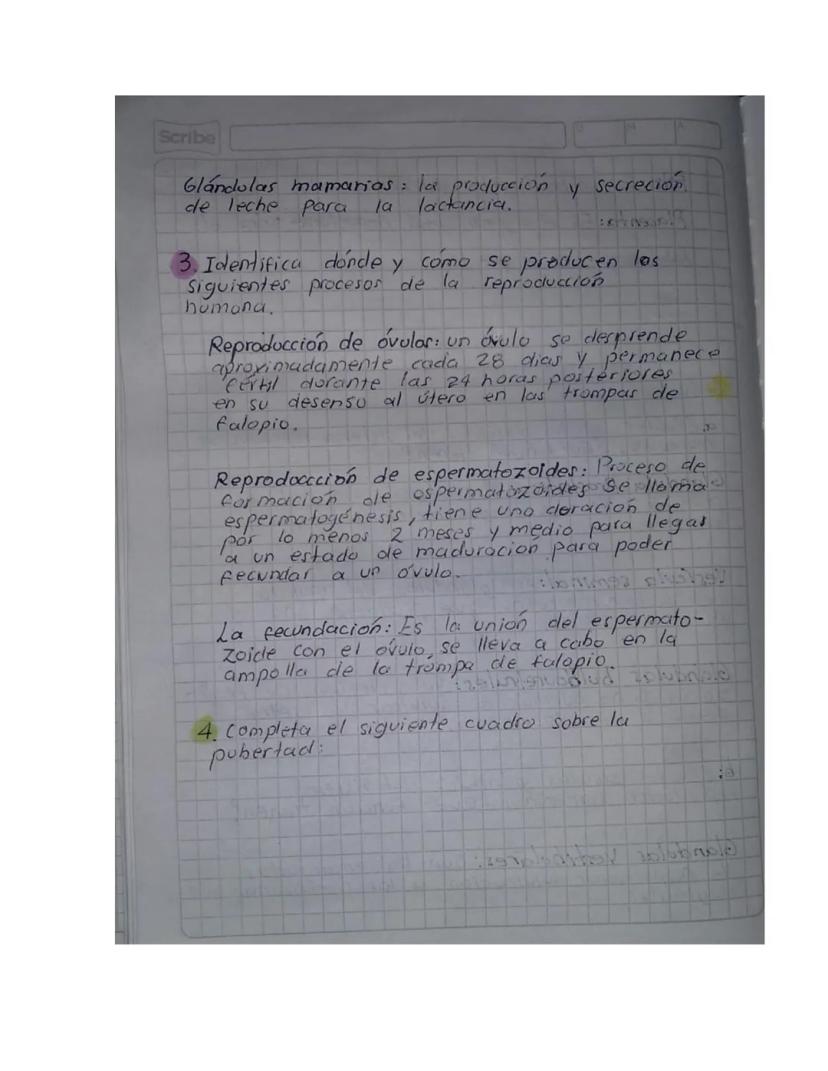 Scribe
D M A
Glándulas mamarias: la producción y secreción
de leche para la lactancia.
3. Identifica dónde y cómo se producen los
siguientes procesos de la reproducción
humana.
Reproducción de óvulos: un óvulo se desprende
aproximadamente cada 28 dias y permanece
fértil durante las 24 horas posteriores
en su desenso al útero en las trompas de
falopio.
Reproduccción de espermatozoides: Proceso de
formación de espermatozoides se llama
espermatogénesis, tiene una duración de
por lo menos 2 meses y medio para llegar
a un estado de maduración para poder
fecundar a un óvulo.
La fecundación: Es la unión del espermato-
zoide con el óvulo, se lleva a cabo en la
ampolla de la trompa de falopio.
4. Completa el siguiente cuadro sobre la
pubertad: